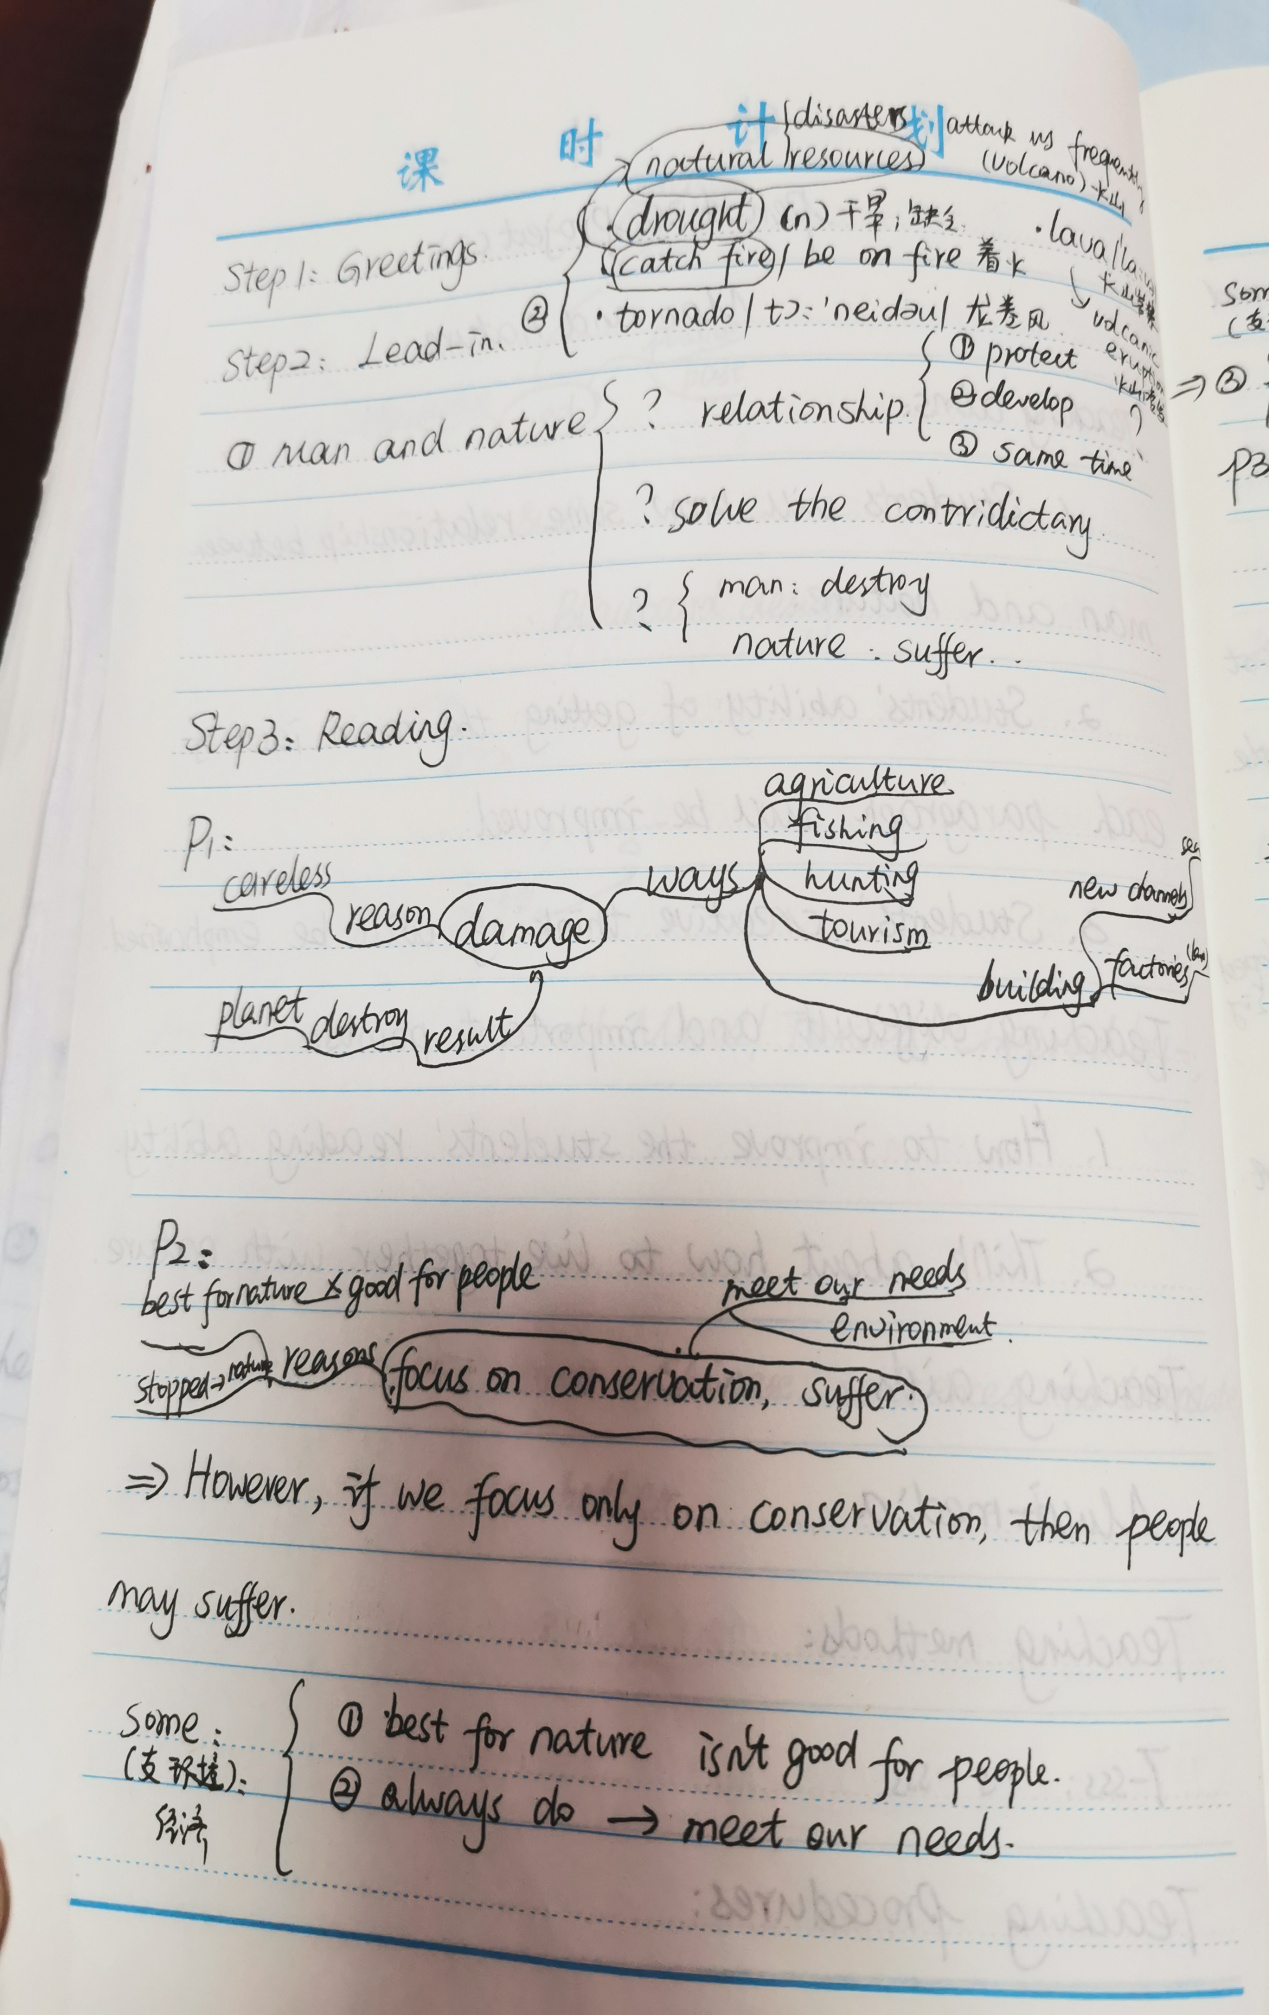 课 时 计 划
disasters attack us frequently
natural resources (volcano) 火山
Step 1: Greetings.
· drought (n) 干旱; 缺乏
· lava
catch fire / be on fire 着火
Step 2: Lead-in. ② · tornado /tɔ:'neidəu/ 龙卷风
volcanic eruption
① man and nature ? relationship ① protect
② develop
③ same time
? solve the contridictary
? man: destroy
nature: suffer..
Step 3: Reading.
P1:
agriculture
fishing
careless reason damage ways hunting
tourism
new channels
building factories
planet destroy result
P2:
best for nature × good for people
meet our needs
environment
stopped → nature reasons focus on conservation, suffer.
⇒ However, if we focus only on conservation, then people
may suffer.
Some:
① best for nature isn't good for people.
② always do → meet our needs.
⇒ ③
P3